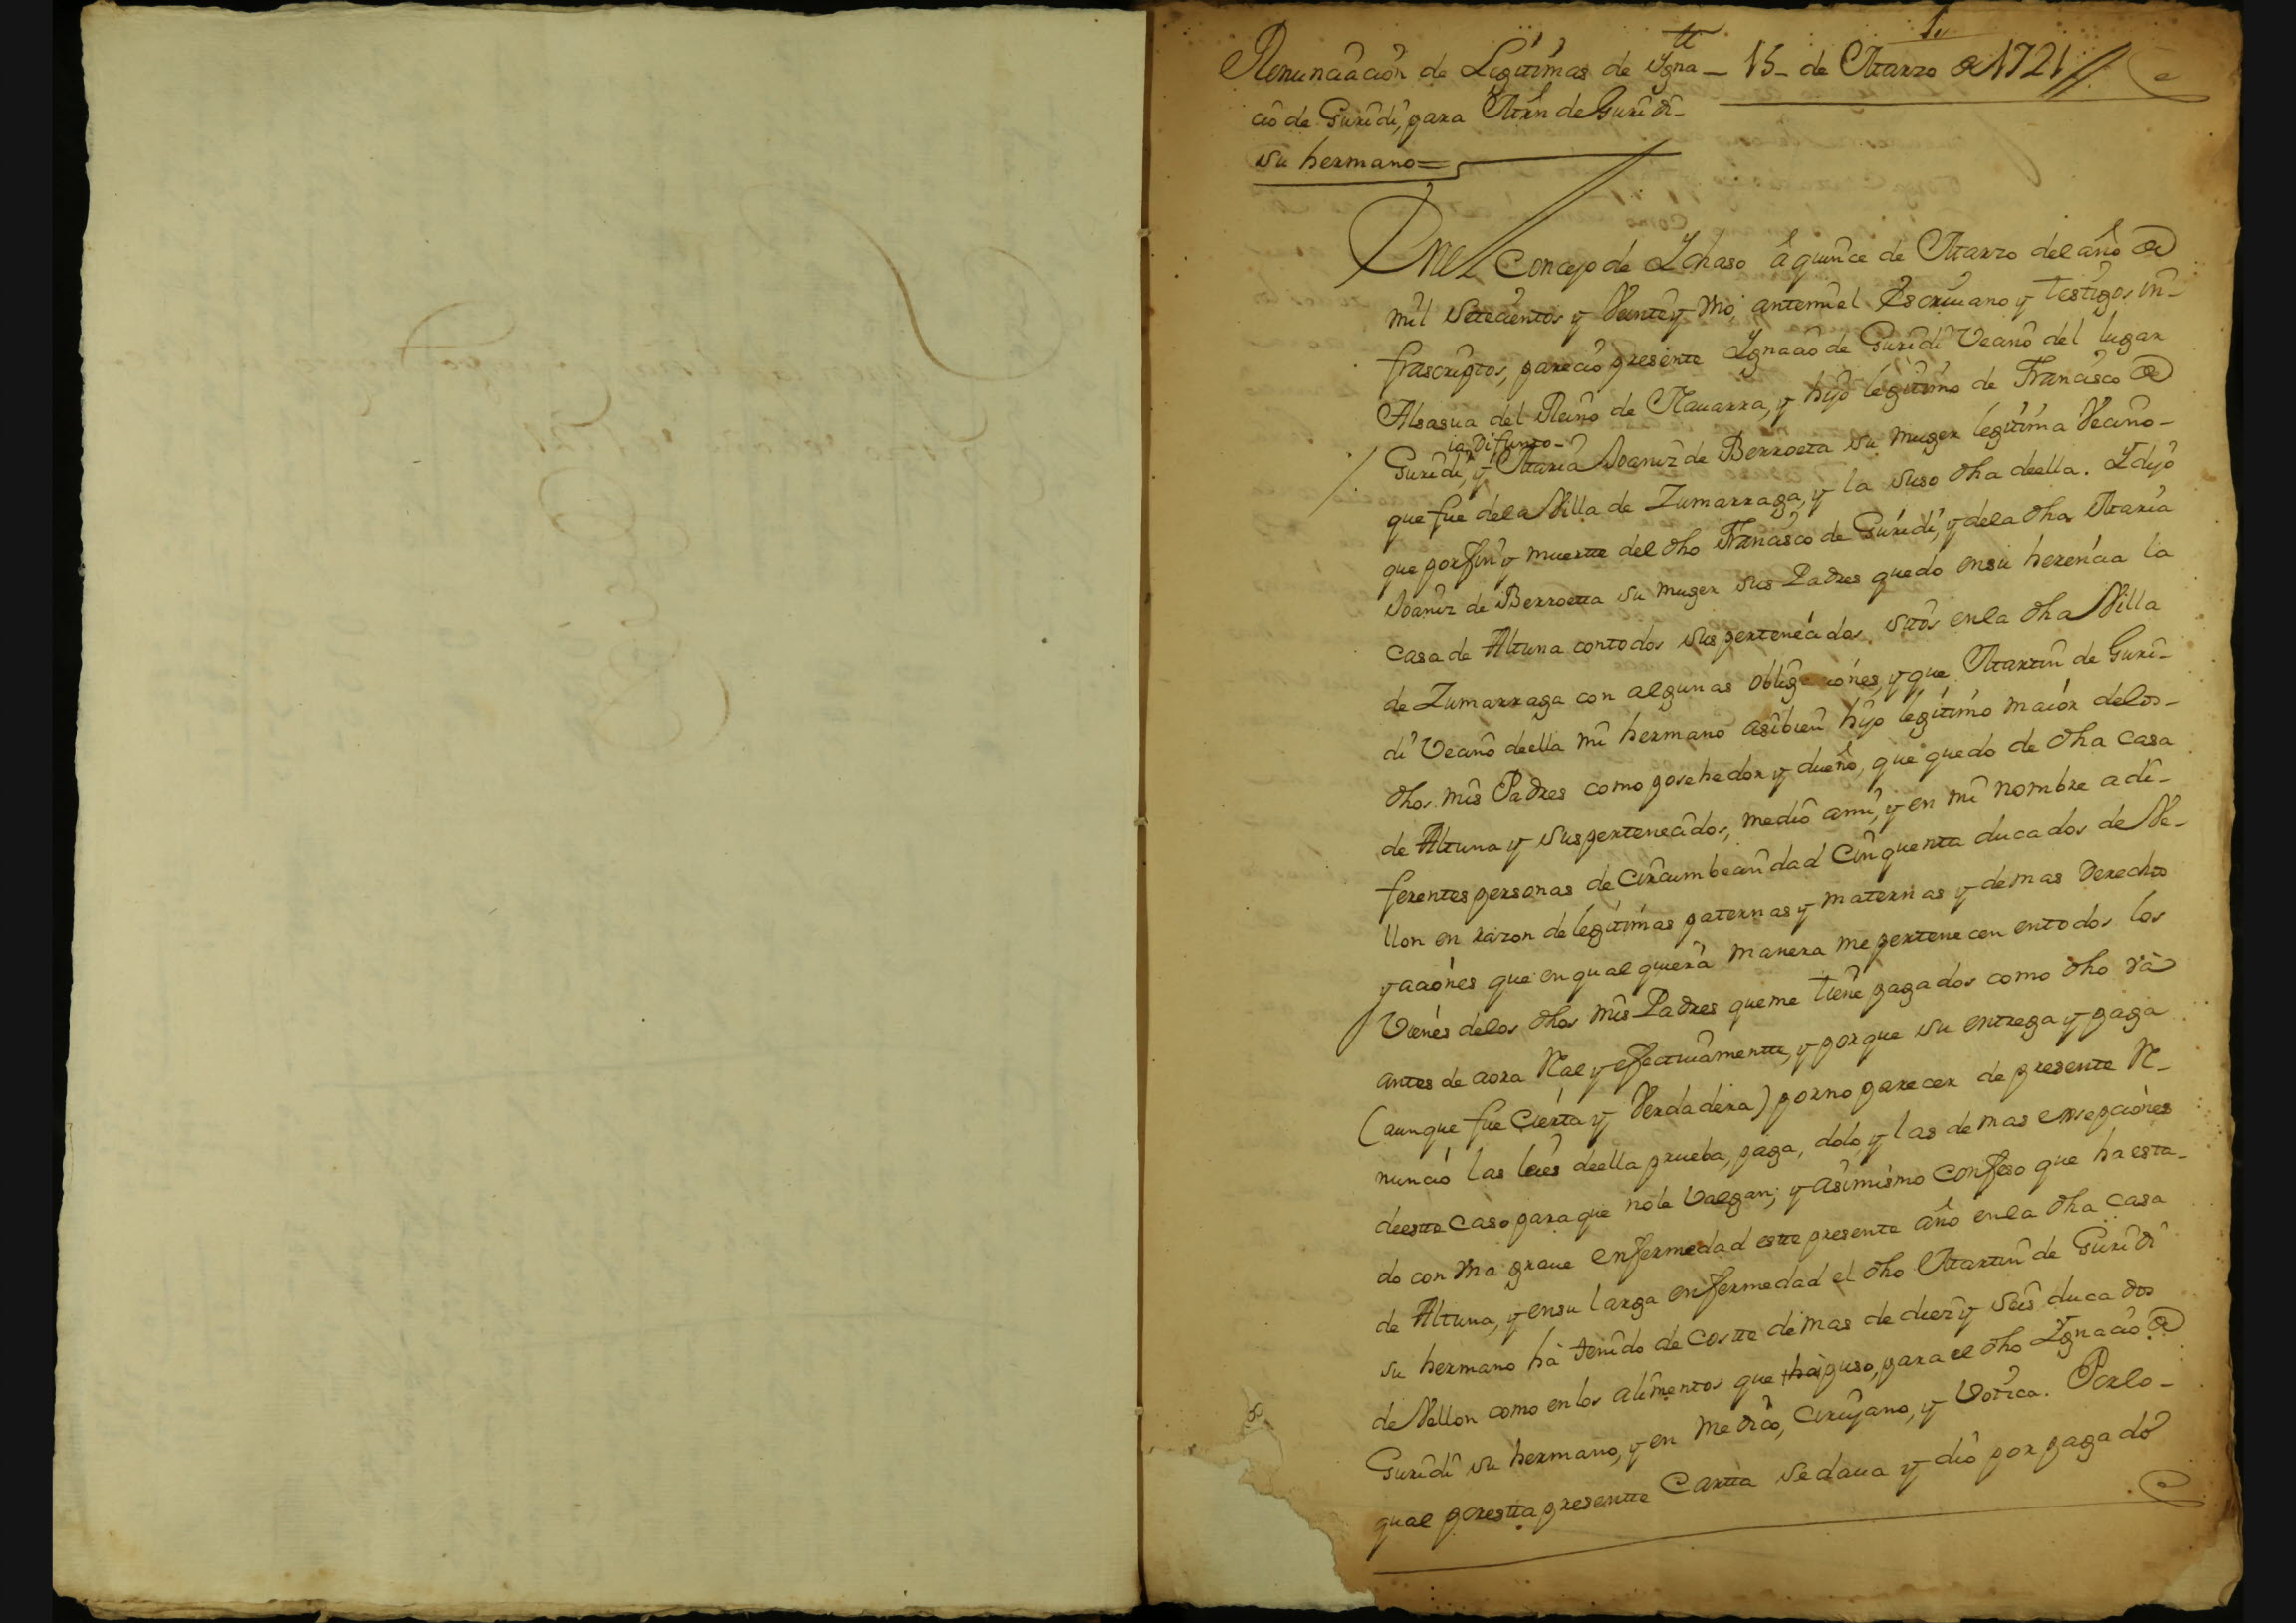 1
Renunciacion de Legitimas de Ygna – 15 – de Marzo de 1721
cio de Guridi, para Mrn de Guridi –
su hermano =
En el Concejo de Ychaso â quince de Marzo del año de
mil setecientos y Veinte y Vno, ante mi el Escriuano y testigos in-
frascriptos, parecio presente Ygnacio de Guridi Vecino del lugar
Alsasua del Reino de Nauarra, y hijo legitimo de Francisco de
ia difunto –
Guridi, y Maria Joaniz de Berroeta su muger legitima Vecino –
que fue de la Villa de Zumarraga, y la suso dha de ella. Y dijo
que por fin y muerte del dho Francisco de Guridi, y de la dha Maria
Joaniz de Berroetta su muger sus Padres quedó en su herencia la
Casa de Altuna con todos sus pertenecidos sitos en la dha Villa
de Zumarraga con algunas obligaciones, y que Martin de Guri-
di Vecino de ella mi hermano asibien hijo legitimo maior de los –
dhos mis Padres como posehedor y dueño, que quedo de dha casa
de Altuna y sus pertenecidos, me dio a mi, y en mi nombre a di-
ferentes personas de circumbecindad Cinquenta ducados de Ve-
llon en razon de legitimas paternas y maternas y demas derechos
y aciones que en qualquiera manera me pertenecen en todos los
Vienes de los dhos mis Padres que me tiene pagados como dho và
antes de aora Rl y efectiuamente, y porque su entrega y paga
(aunque fue Cierta y Verdadera) por no parecer de presente Re-
nunció las leies de ella prueba, paga, dolo, y las demas ensepciones
de este caso para que no le Valgan; y asimismo confeso que ha esta-
do con Vna graue enfermedad este presente año en la dha casa
de Altuna, y en su larga enfermedad el dho Martin de Guridi
su hermano há tenido de coste demas de diez y seis ducados
de Vellon como en los alimentos que puso, para el dho Ygnacio de
Guridi su hermano, y en Medico, Cirujano, y Votica. Por lo –
qual por esta presente Cartta se daua y dió por pagado